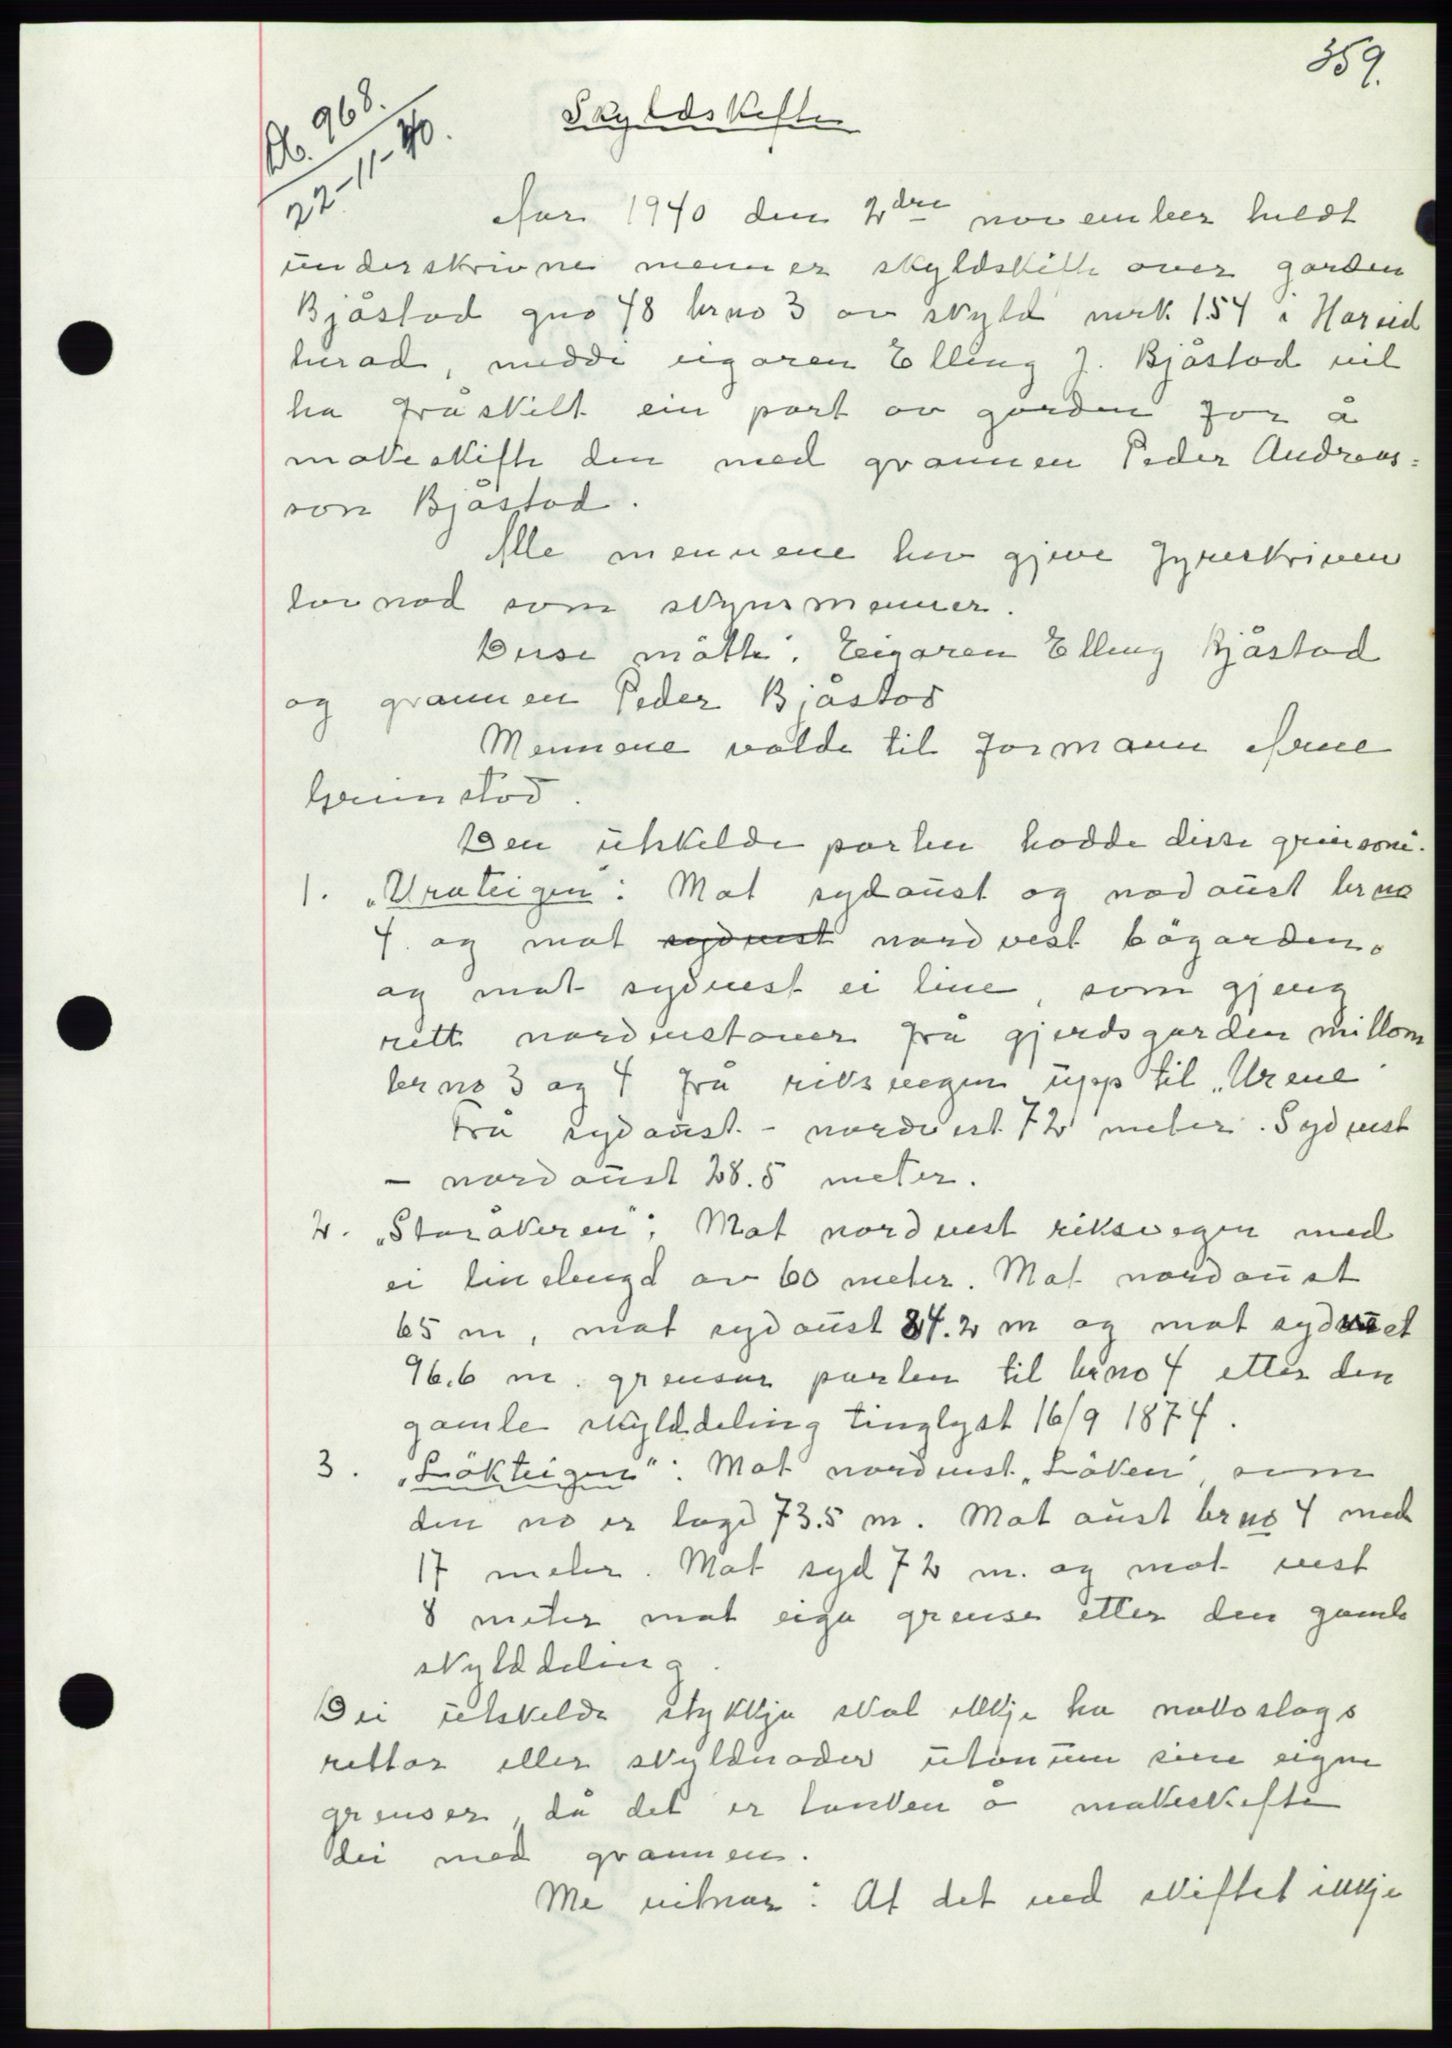 359.
Db. 968.
22-11-40.
Skyldskifte
Aar 1940 den 2dre november heldt
underskrivne menner skyldskifte over garden
Bjåstad gno 48 brno 3 av skyld mrk. 1.54 i Hareid
herad, medde eigaren Elling J. Bjåstad vil
ha fråskilt ein part av garden for å
makeskifte den med grannen Peder Andreas-
son Bjåstad.
Alle mennene hev gjeve fyreskriven
lovnad som skynsmenner.
Desse møtte: Eeigaren Elling Bjåstad
og grannen Peder Bjåstad
Mennene valde til formann Arne
Grimstad.
Den utskilde parten hadde disse grensone:
1. „Urateigen": Mot sydaust og nodaust brno
4. og mot sydvest nordvest bøgarden.
og mot sydvest ei line, som gjeng
rett nordvestover frå gjerdsgarden millom
brno 3 og 4 frå riksvegen upp til „Urene"
Frå sydaust - nordvest 72 meter. Sydvest
- nordaust 28.5 meter.
2. „Storåkeren": Mot nordvest riksvegen med
ei linelengd av 60 meter. Mot nordaust
65 m, mot sydaust 84.2 m og mot sydvest
96.6 m. grensar parten til brno 4 etter den
gamle skylddeling tinglyst 16/9 1874.
3. „Løkteigen": Mot nordvest „Løken", som
den no er lagd 73.5 m. Mot aust brno 4 med
17 meter. Mot syd 72 m. og mot vest
8 meter mot eiga grense etter den gamle
skylddeling.
Dei utskilde stykkje skal ikkje ha nokoslags
rettar eller skyldnader utanum sine eigne
grenser, då det er tanken å makeskifte
dei med grannen.
Me vitnar: At det ved skiftet ikkje